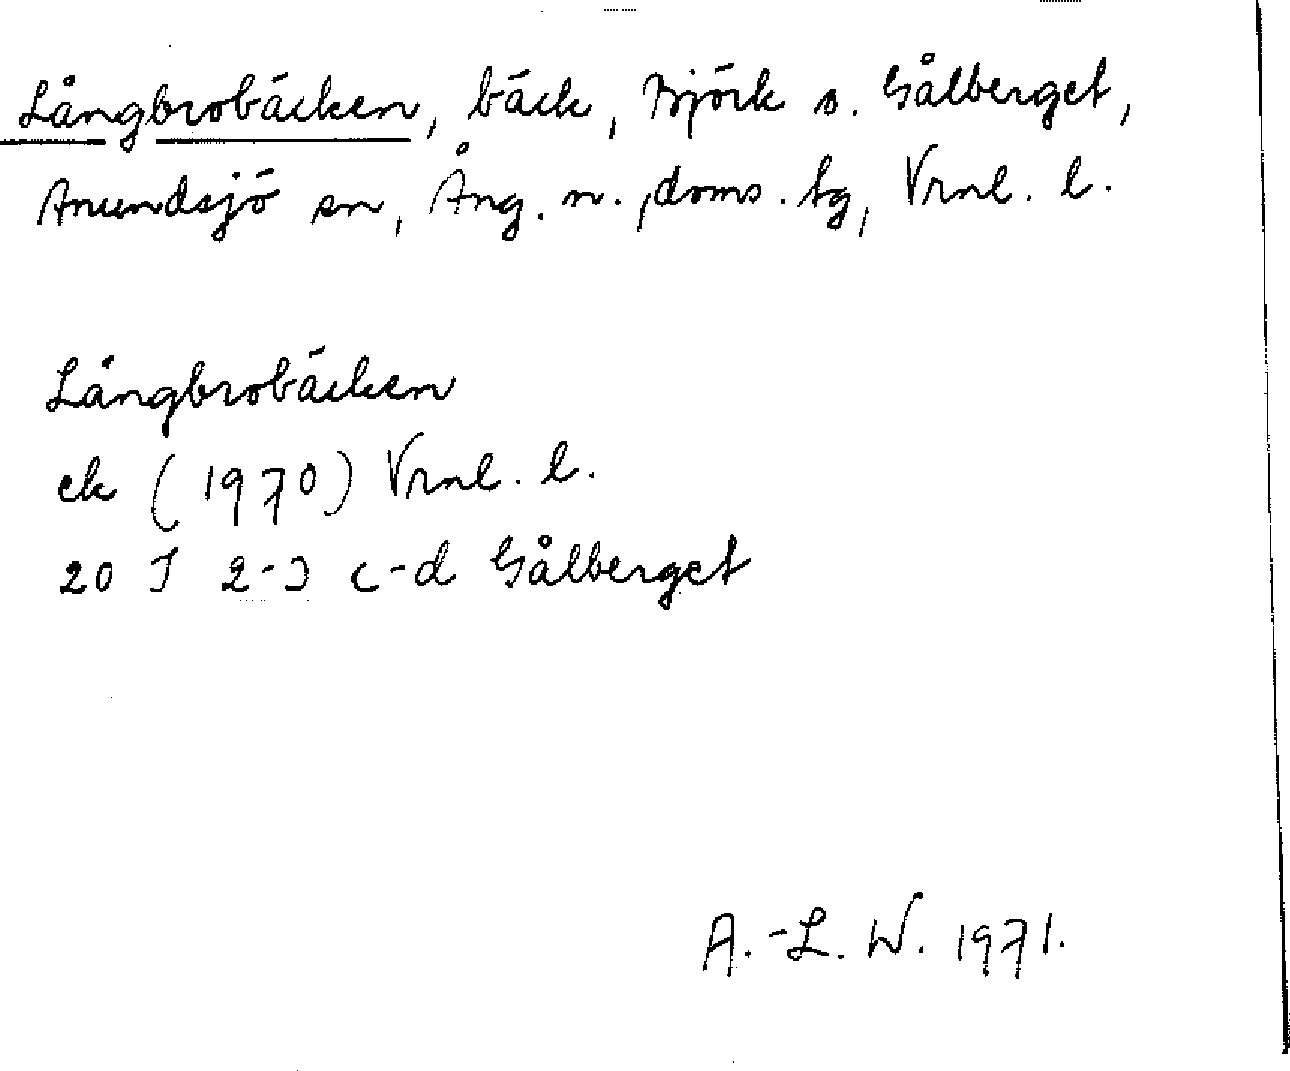 Långbrobäcken, bäck, Björk s. Gålberget,
Anundsjö sn, Ång. n., doms. tg, Vrnl. l.
Långbrobäcken
ek (1970) Vrnl. l.
20 I 2-3 c-d Gålberget
A.-L. W. 1971.